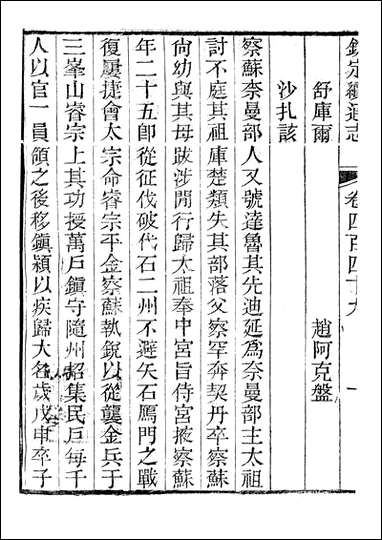 欽定續通志　卷四百四十九　一
舒庫爾　趙阿克盤
沙扎該
察蘇奈曼部人又號達魯其先迪延為奈曼部主太祖
討不庭其祖庫楚類失其部落父察罕奔契丹卒察蘇
尚幼與其母跋涉閒行歸太祖奉中宮旨侍宮掖察蘇
年二十五即從征伐破代石二州不避矢石鴈門之戰
復屢捷會太宗命睿宗平金察蘇執銳以從襲金兵于
三峯山睿宗上其功授萬戶鎮守隨州招集民戶每千
人以官一員領之後移鎮潁以疾歸大名歲戊申卒子